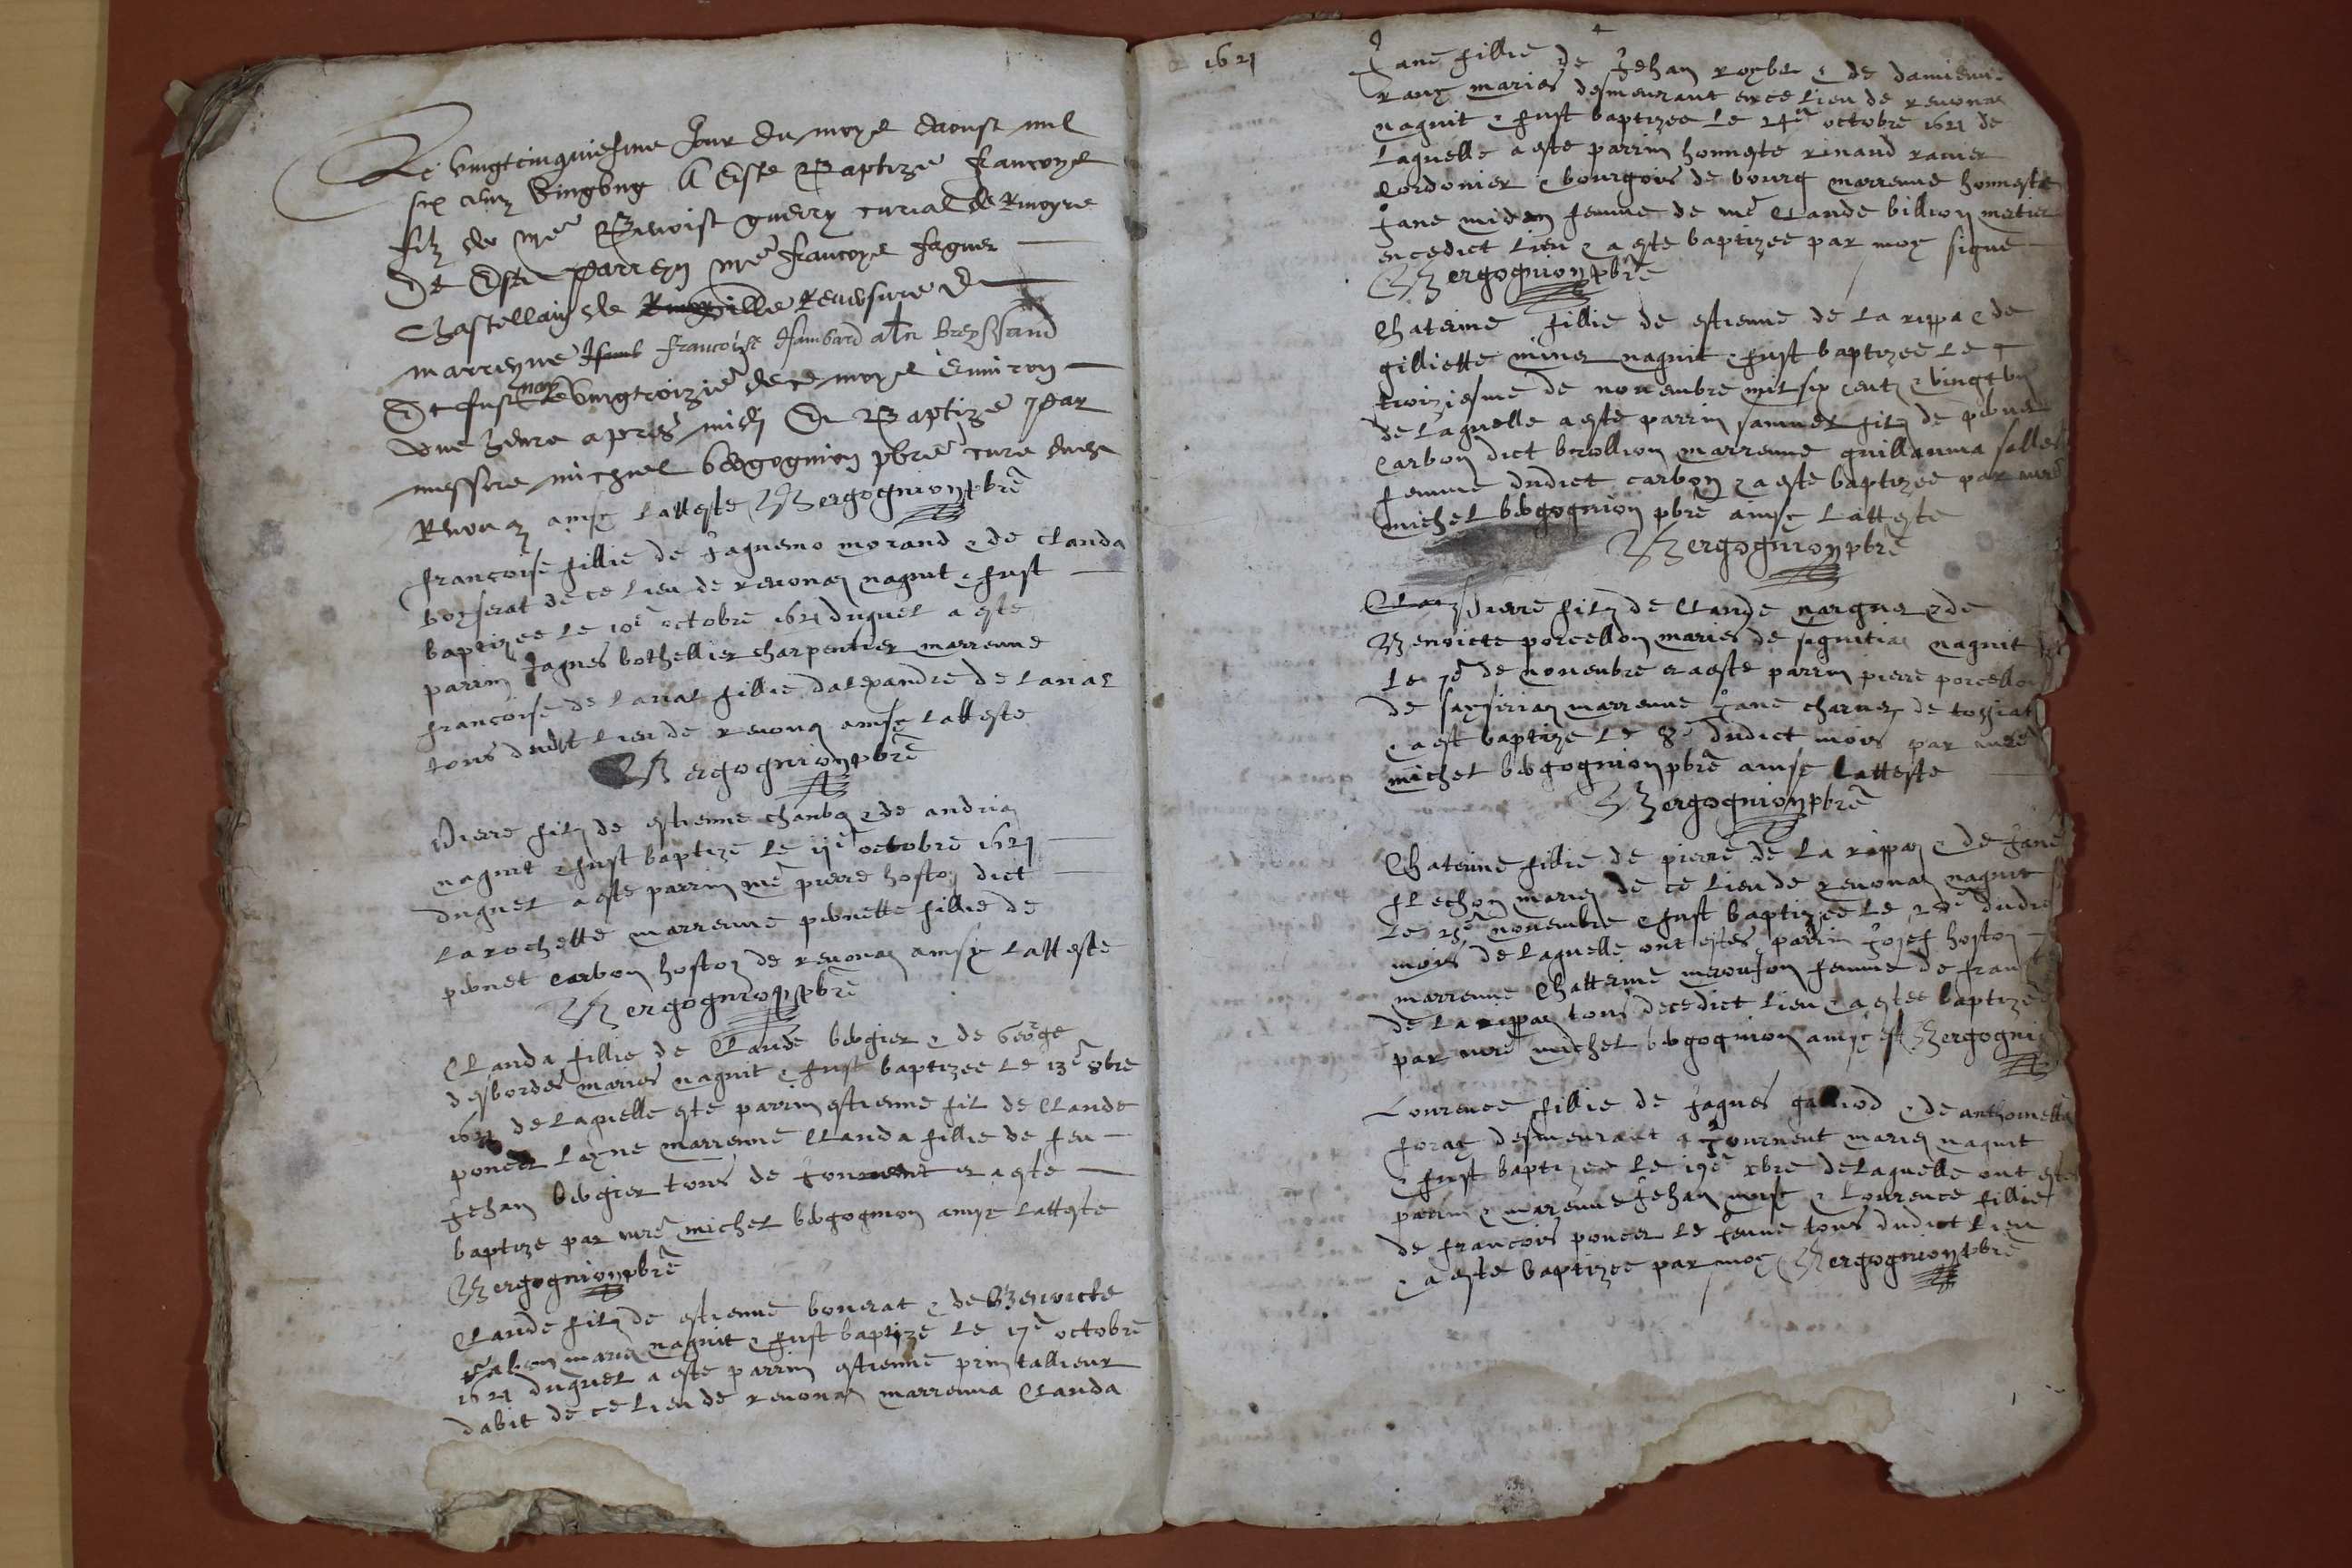 Le vingtcinquiesme Jour du moys daoust mil
six cent vingt ung A Este Baptize francoys
filz de me Benoist guerry curial de
Et Este parreyn me francoys faguer
Chastellain de Reversure Et
marreyne francoise Isambard breyssand
Et fust nay le vingtroizie de ce moys Environ
une heure apres midy Et Baptize par
messire michel bergognion pbre cure dudt
Revona ainsy latteste Bergognion pbre
francoise fillie de Jaquemo morand & de clauda
boyserat de ce lieu de revona naquit & fust
baptizee le 10e octobre 1621 duquel a este
parrin Jaques bothellier charpentier marrenne
francoise de laval fillie dalexandre de laval
tous dudit lieu de revona ainsy latteste
Bergognion pbre
Pierre filz de estienne chanbo & de andria
naquit & fust baptize le 11e octobre 1621
duquel a este parrin me pierre hoston dict
larochette marrenne pernette fillie de
pernet carbon hoston de revona ainsy latteste
Bergognion pbre
Clauda fillie de Claude bergier & de George
desbordes maries naquit & fust baptizee le 13e 8bre
1621 de laquelle este parrin estienne fil de claude
poncet layne marrenne Clauda fillie de feu
Jehan bergier tous de Journent et a este
baptize par mre michel bergognion ainsy latteste
Bergognion pbre
Claude filz de estienne bonerat & de Benoicte
maries naquit & fust baptize le 17e octobre
1621 duquel a este parrin estienne prin tallieur
dabit de ce lieu de revona marrenna Clauda
1621
Jane fillie de Jehan royber & de damienne
maries desmeurant en ce lieu de revona
naquit & fust baptizee le 24e octobre 1621 de
laquelle a este parrin honneste rinaud ravier
cordonier & bourgois de bourg marrenne honneste
Jane midan femme de me Claude billion
en cedict lieu & a este baptizee par moy signe
Bergognion pbre
Chaterine fillie de estienne de la rippa & de
gilliette miner naquit & fust baptizee le
troiziesme de novembre mil six cent & vingt un
de laquelle a este parrin samuel filz de pernet
carbon dict brollion marrenne guillauma
femme dudict carbon & a este baptizee par mre
michel bergognion pbre ainsy latteste
Bergognion pbre
Pierre filz de Claude narguer & de
Benoicte porcellon maries de signitia naquit
le 7e de novembre et a este parrin pierre porcellon
de saysiria marrenne Jane charner de tossiat
& a est baptize le 8e dudict mois par mre
michel bergognion pbre ainsy latteste
Bergognion pbre
Chaterine fillie de pierre de la rippa & de Jane
flechon maries de ce lieu de revona naquit
le novembre & fust baptizee le dudict
mois de laquelle ont estes parrin Josef hoston
marrenne Chatterine femme de
de la rippa tous decedict lieu & a estee baptizee
par mre michel bergognion ainsy est Bergogni
Lourence fillie de Jaques & de anthoinette
foray desmeurant a Journent maries naquit
& fust baptizee le 19e xbre de laquelle ont estes
parrin & marenne Jehan & Lourence fillie
de francois poncer le Jeune tous dudict lieu
& a este baptizee par moy Bergognion pbre